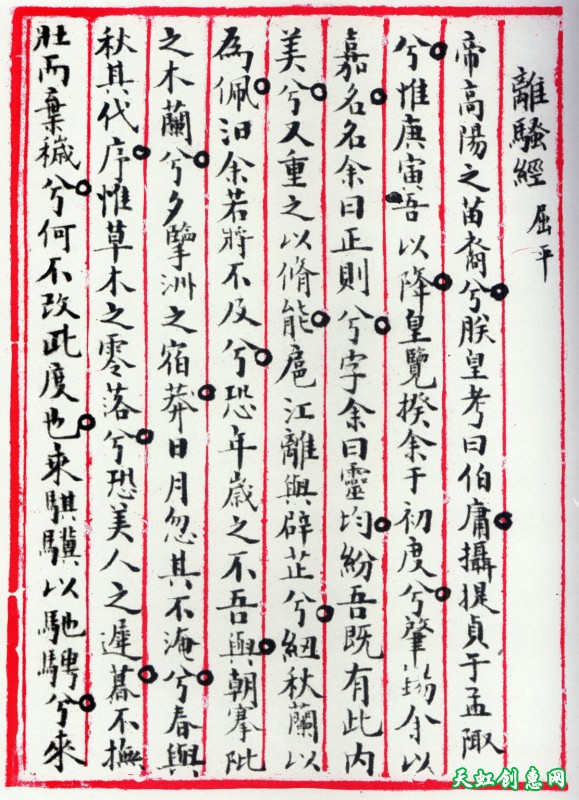 離騷經 屈平
帝高陽之苗裔兮朕皇考曰伯庸攝提貞于孟陬
兮惟庚寅吾以降皇覽揆余于初度兮肇錫余以
嘉名名余曰正則兮字余曰靈均紛吾既有此内
美兮又重之以脩能扈江離與辟芷兮紐秋蘭以
為佩汨余若將不及兮恐年歲之不吾與朝搴阰
之木蘭兮夕擥洲之宿莽日月忽其不淹兮春與
秋其代序惟草木之零落兮恐美人之遲暮不撫
壯而棄穢兮何不改此度也乘騏驥以馳騁兮來
天虹创惠网